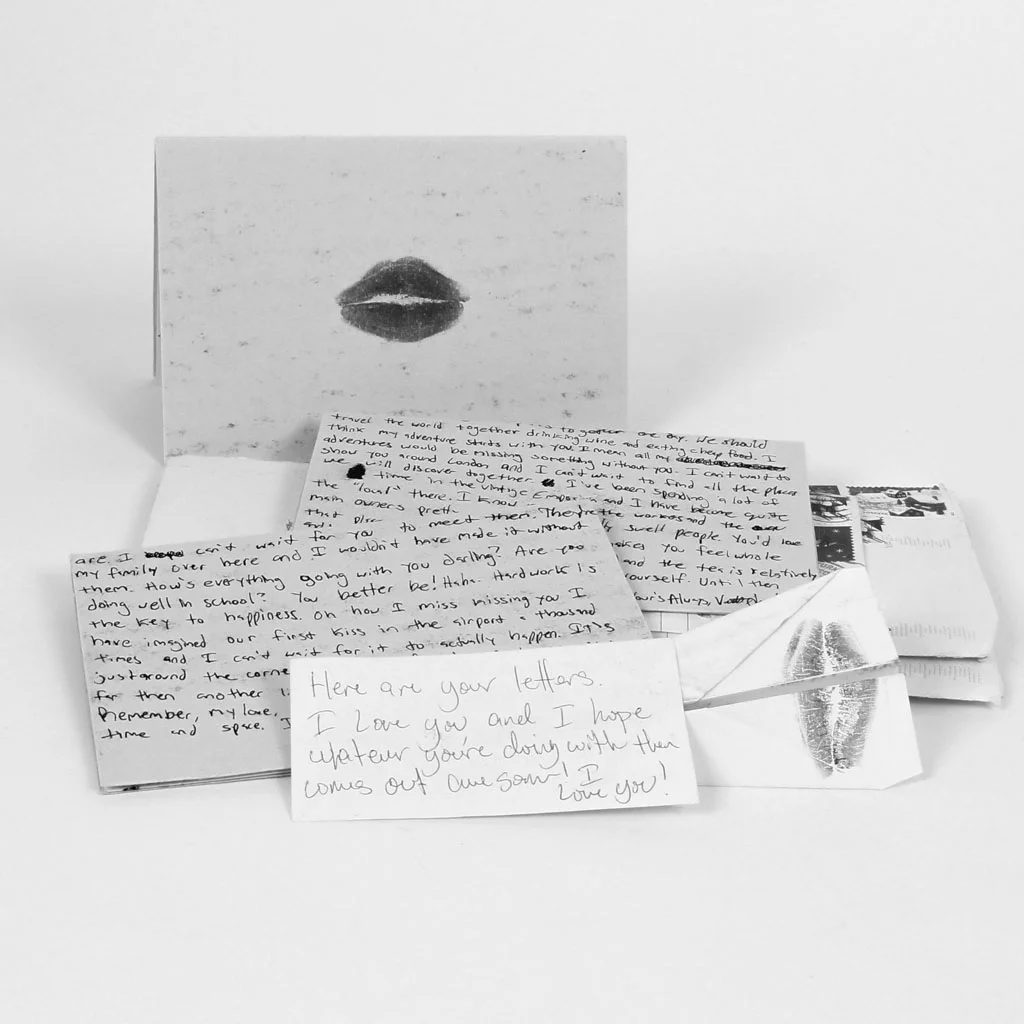 travel the world together drinking wine and eating cheap food. I
think my adventure starts with you. I mean all my
adventures would be missing something without you. I can't wait to
show you around London and I can't wait to find all the places
we will discover together. I've been spending a lot of
time in the Vintage Emporia and I have become quite
the "local" there. I know
main owners
to meet them. The workers and the
swell people. You'd love
makes you feel whole
and the tea is relatively
yourself. Until then
Yours Always,
are. I can't wait for you
my family over here and I wouldn't have made it without
them. How's everything going with you darling? Are you
doing well in school? You better be! Haha. Hard work is
the key to happiness. Oh how I miss kissing you I
have imagined our first kiss in the airport a thousand
times and I can't wait for it to actually happen. It's
just around the corner
far then another
Remember, my love,
time and space. I
Here are your letters.
I Love you and I hope
whatever you're doing with them
comes out awesome! I
Love you!